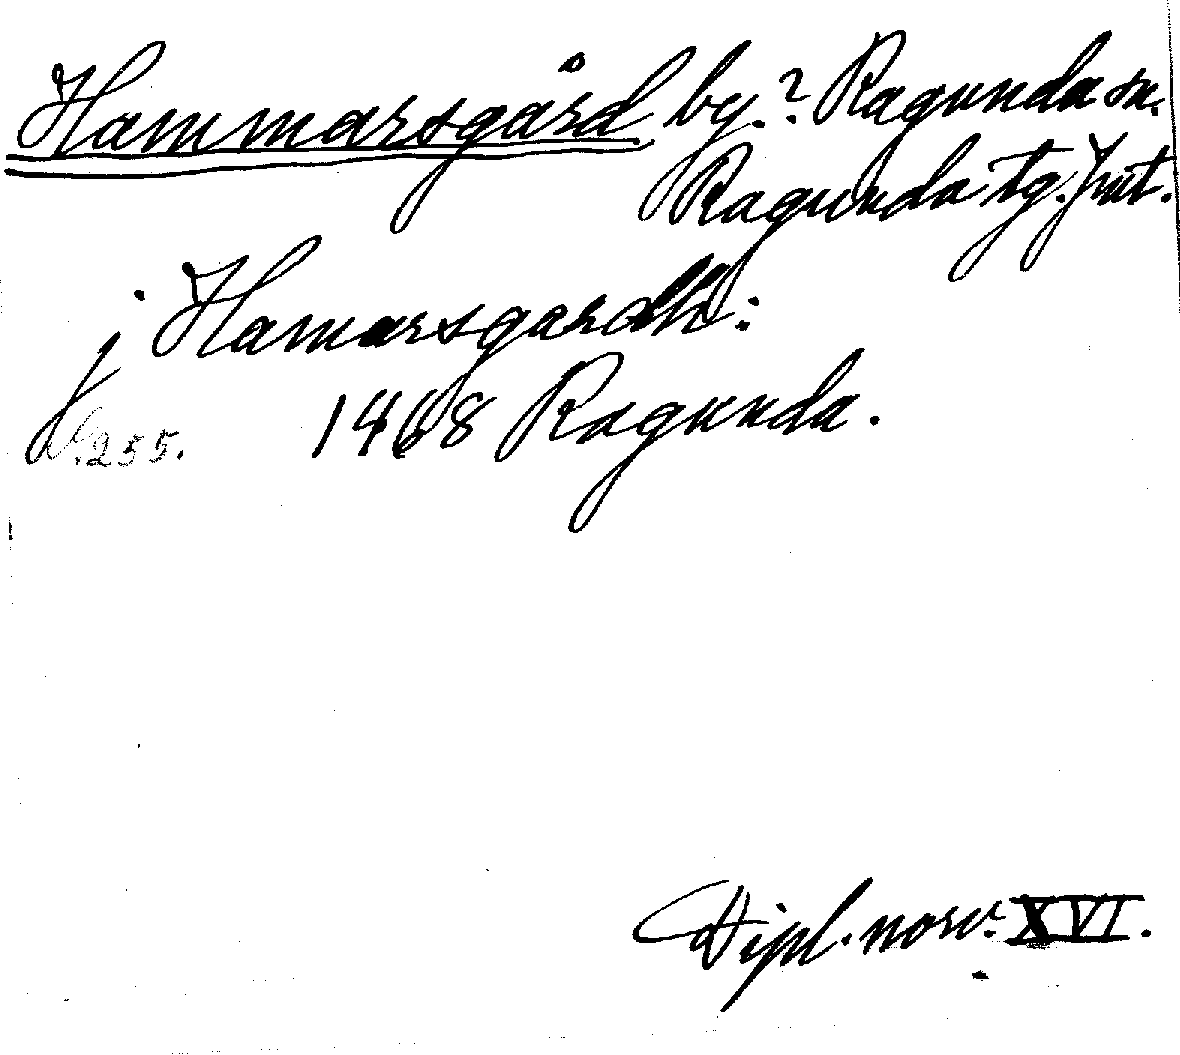 Hammarsgård by.? Ragunda sn.
Ragunda tg. Jmt.
j Hamarsgardh:
1468 Ragunda.
s. 255.
Dipl. norv. XVI.